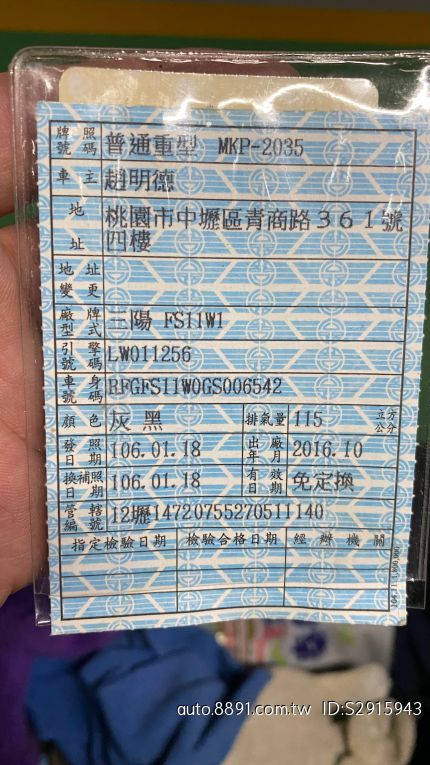 牌照號碼 普通重型 MKP-2035
車主 趙明德
地址 桃園市中壢區青商路361號
四樓
地址變更
廠牌型式 三陽 FS11W1
引擎號碼 LW011256
車身號碼 RFGFS11W0GS006542
顏色 灰 黑 排氣量 115 立方公分
發照日期 106.01.18 出廠年月 2016.10
換補照日期 106.01.18 有效日期 免定換
管轄編號 12壢14720755270511140
指定檢驗日期 檢驗合格日期 經辦機關
auto.8891.com.tw ID:S2915943